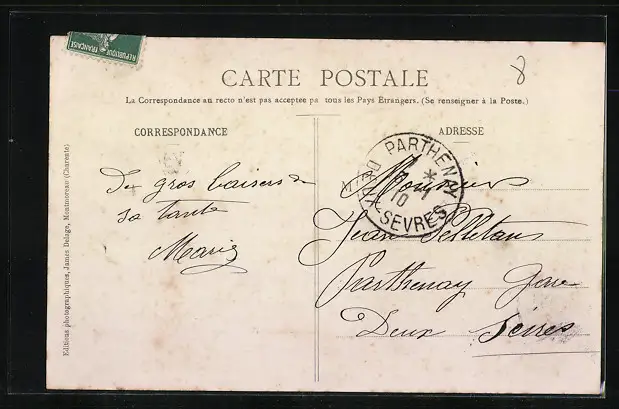 REPUBLIQUE FRANÇAISE
8
CARTE POSTALE
La Correspondance au recto n'est pas acceptée pa tous les Pays Etrangers. (Se renseigner à la Poste.)
CORRESPONDANCE
ADRESSE
De gros baisers
Sa tante
Marie
PARTHENAY
DEUX SEVRES
10
Monsieur
Jean Pelletans
Parthenay Gare
Deux Sèvres
Editions photographiques, James Delage, Montmoreau (Charente)